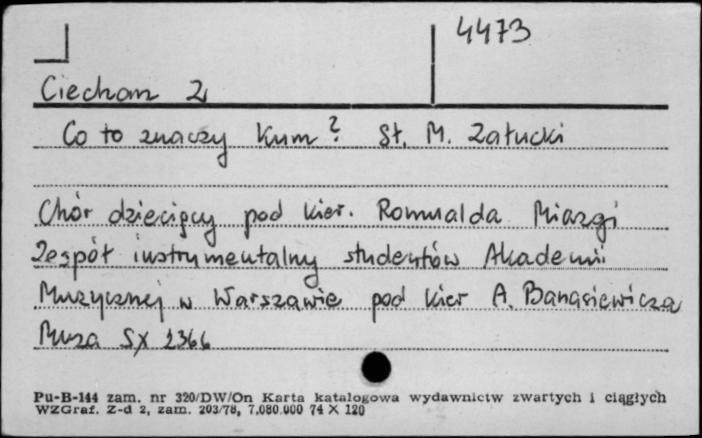 4473
Ciechan Z
Co to znaczy Kum? Sł. M. Załucki
Chór dziecięcy pod kier. Romualda Miazgi
Zespół instrumentalny studentów Akademii
Muzycznej w Warszawie pod kier A. Banasiewicza
Muza SX 2366
Pu-B-144 zam. nr 320/DW/On Karta katalogowa wydawnictw zwartych i ciągłych
WZGraf. Z-d 2, zam. 203/78, 7.080.000 74 X 120